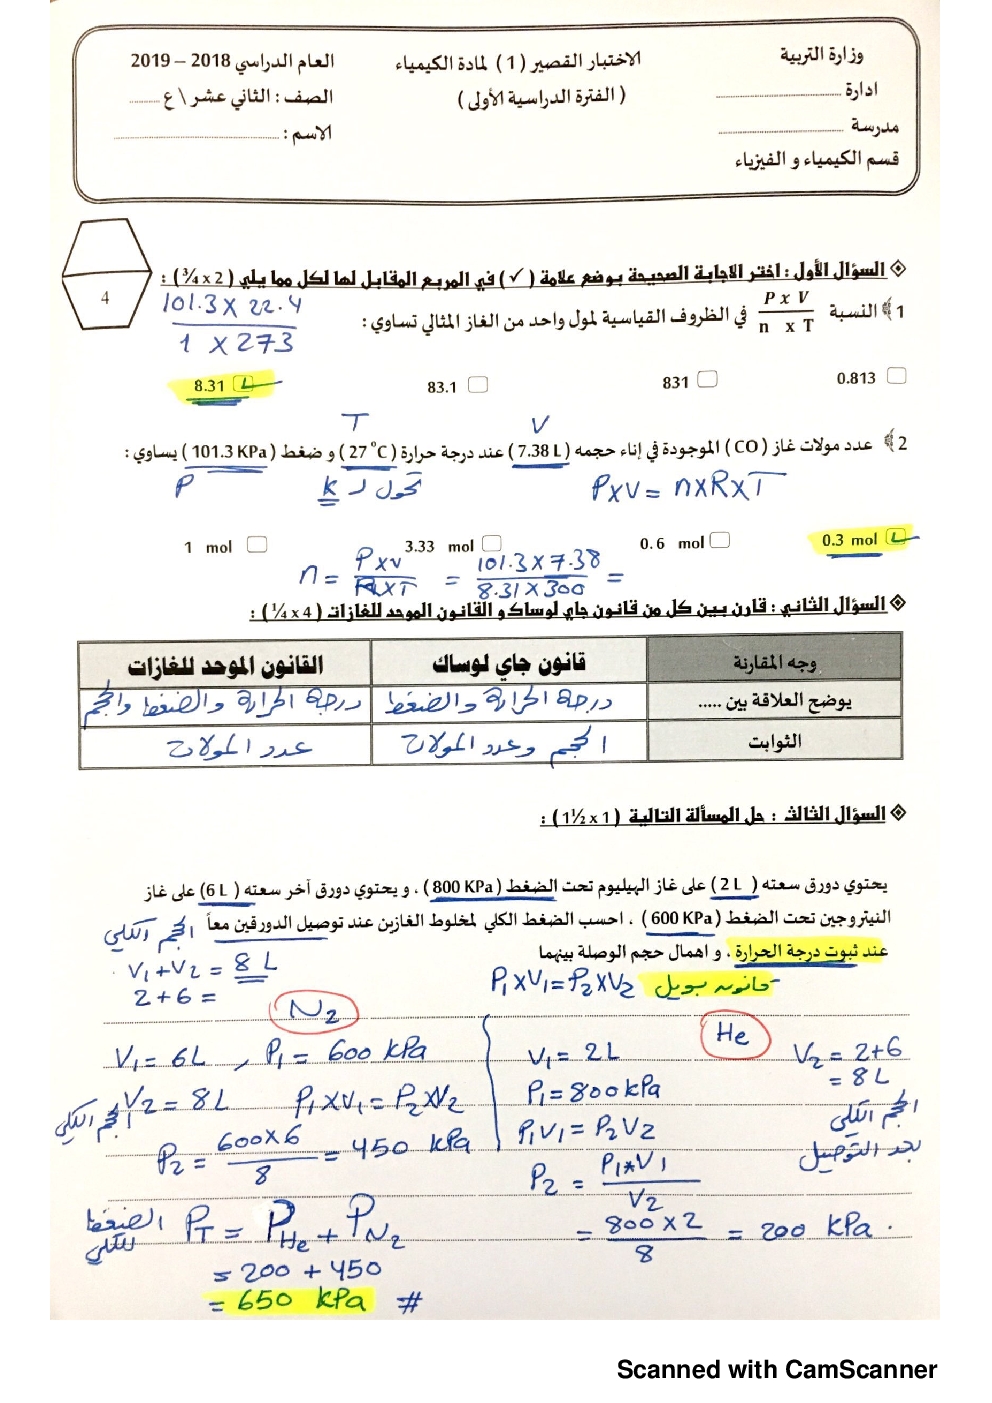 وزارة التربية
ادارة ........................
مدرسة ........................
قسم الكيمياء و الفيزياء
الاختبار القصير ( 1 ) لمادة الكيمياء
( الفترة الدراسية الأولى )
العام الدراسي 2018 – 2019
الصف : الثاني عشر \ ع ........
الاسم : ................................
4
السؤال الأول : اختر الاجابة الصحيحة بوضع علامة ( ✓ ) في المربع المقابل لها لكل مما يلي ( 2 x ¾ ) :
1 النسبة P x V / n x T في الظروف القياسية لمول واحد من الغاز المثالي تساوي :
101.3 x 22.4 / 1 x 273
0.813 831 83.1 8.31
T V
2 عدد مولات غاز ( CO ) الموجودة في إناء حجمه ( 7.38 L ) عند درجة حرارة ( 27 °C ) و ضغط ( 101.3 KPa ) يساوي :
P تحول لـ k PxV = nxRxT
0.3 mol 0.6 mol 3.33 mol 1 mol
n = PxV / RxT = 101.3 x 7.38 / 8.31 x 300 =
السؤال الثاني : قارن بين كل من قانون جاي لوساك و القانون الموحد للغازات ( 4 x ¼ ) :
وجه المقارنة قانون جاي لوساك القانون الموحد للغازات
يوضح العلاقة بين ..... درجة الحرارة والضغط درجة الحرارة والضغط والحجم
الثوابت الحجم وعدد المولات عدد المولات
السؤال الثالث : حل المسألة التالية ( 1 x 1½ ) :
يحتوي دورق سعته ( 2 L ) على غاز الهيليوم تحت الضغط ( 800 KPa ) ، و يحتوي دورق آخر سعته ( 6 L ) على غاز
النيتروجين تحت الضغط ( 600 KPa ) ، احسب الضغط الكلي لمخلوط الغازين عند توصيل الدورقين معاً
عند ثبوت درجة الحرارة ، و اهمال حجم الوصلة بينهما
الحجم الكلي
V1+V2 = 8 L
2+6 =
قانون بويل P1xV1=P2xV2
He
V1 = 2L
V2 = 2+6
= 8L
P1 = 800 kPa
الحجم الكلي
بعد التوصيل
P1V1 = P2V2
P2 = P1*V1 / V2
= 800 x 2 / 8 = 200 kPa .
N2
V1 = 6L , P1 = 600 kPa
الحجم الكلي V2 = 8L P1xV1 = P2xV2
P2 = 600x6 / 8 = 450 kPa
الضغط الكلي PT = PHe + PN2
= 200 + 450
= 650 kPa #
Scanned with CamScanner